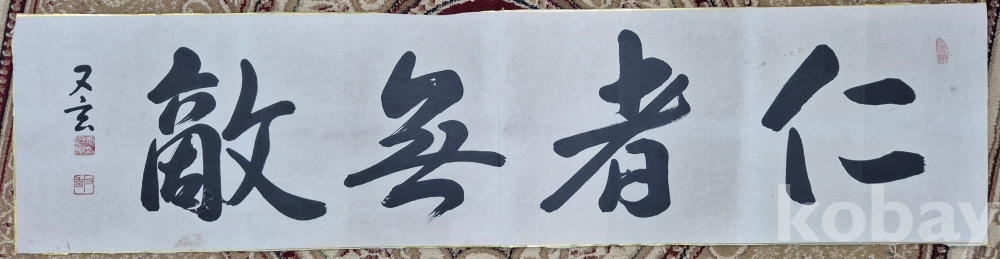 仁者無敵
又玄
kobay